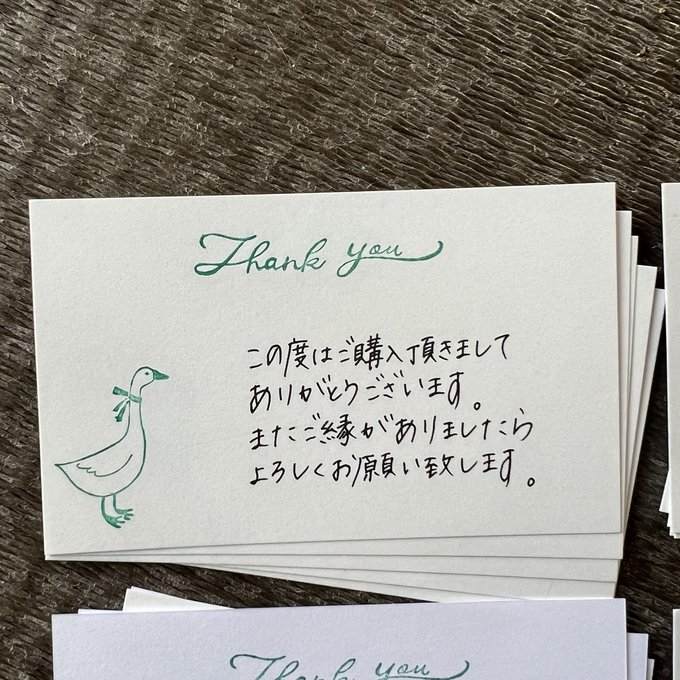 Thank you
この度はご購入頂きまして
ありがとうございます。
またご縁がありましたら
よろしくお願い致します。
Thank you